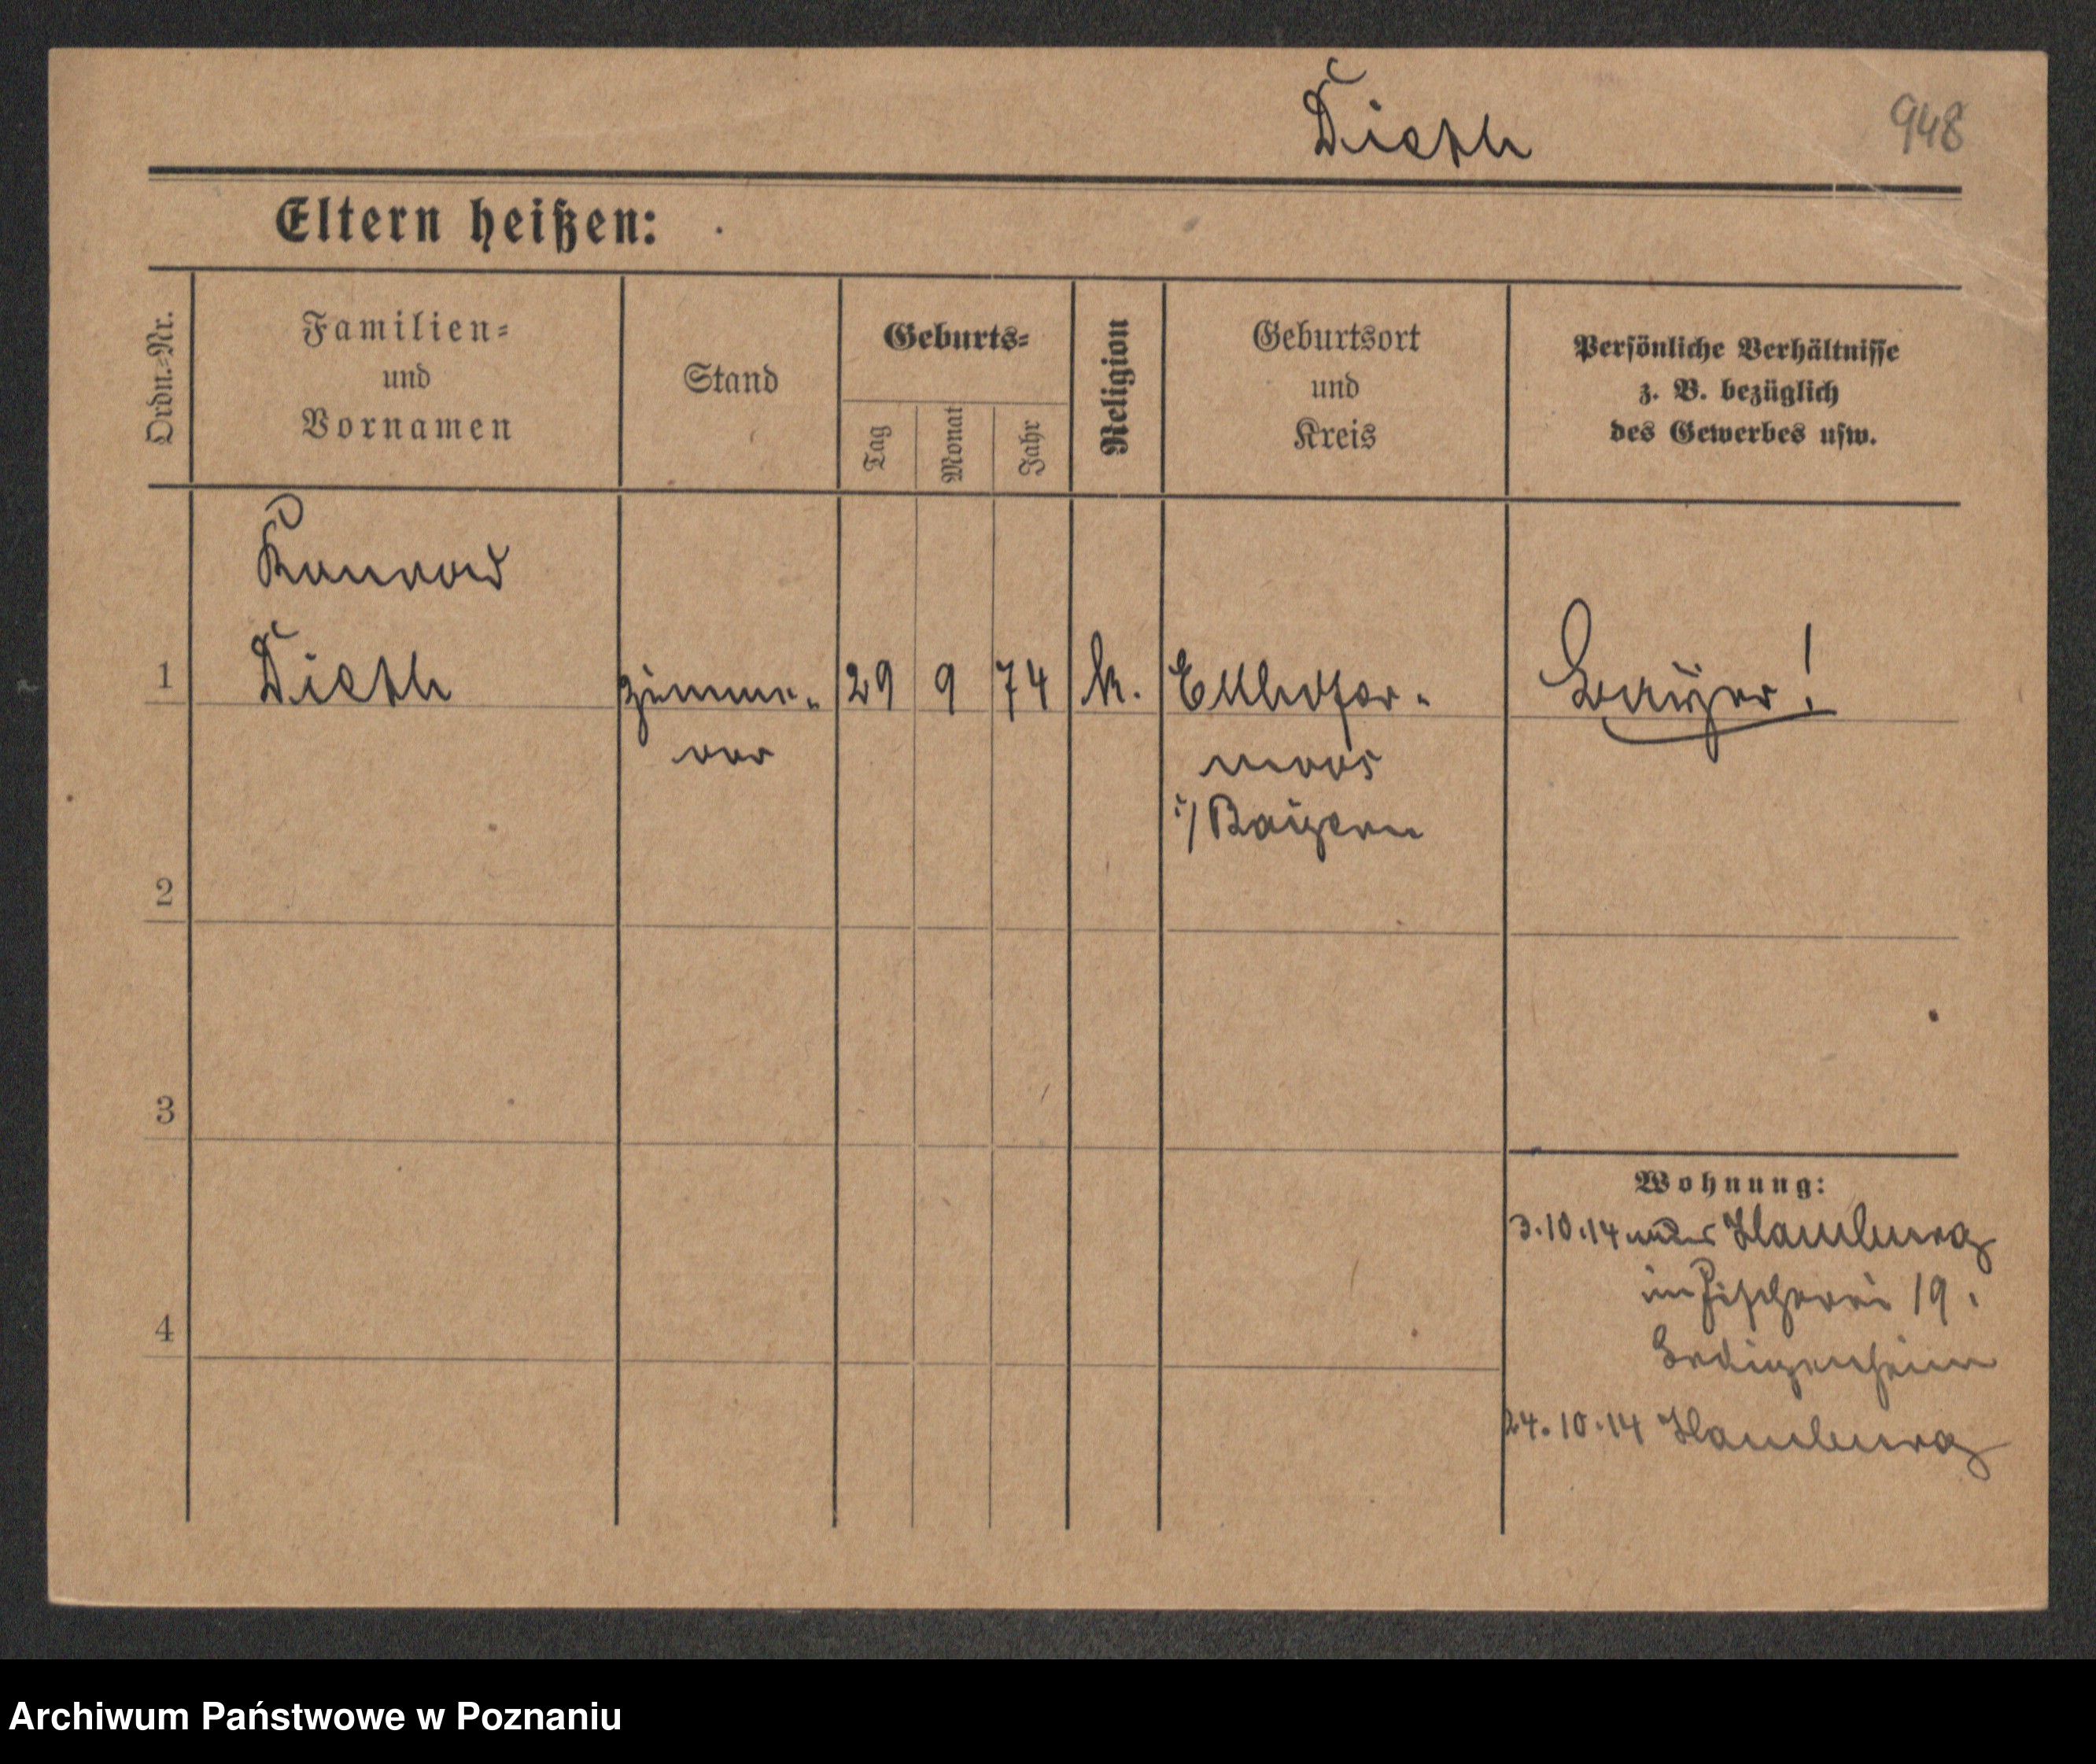 Dieth
948
Eltern heißen:
Ordn.-Nr.
Familien-
und
Vornamen
Stand
Geburts-
Tag
Monat
Jahr
Religion
Geburtsort
und
Kreis
Persönliche Verhältnisse
z. B. bezüglich
des Gewerbes usw.
Konrad
1 Dieth Zimme- 29 9 74 k. Ellhofer-
rer moos
i/ Baÿern
Baÿer!
2
3
4
Wohnung:
3.10.14 Hamburg
im Fischerei 19.
Ledigenheim
24.10.14 Hamburg
Archiwum Państwowe w Poznaniu